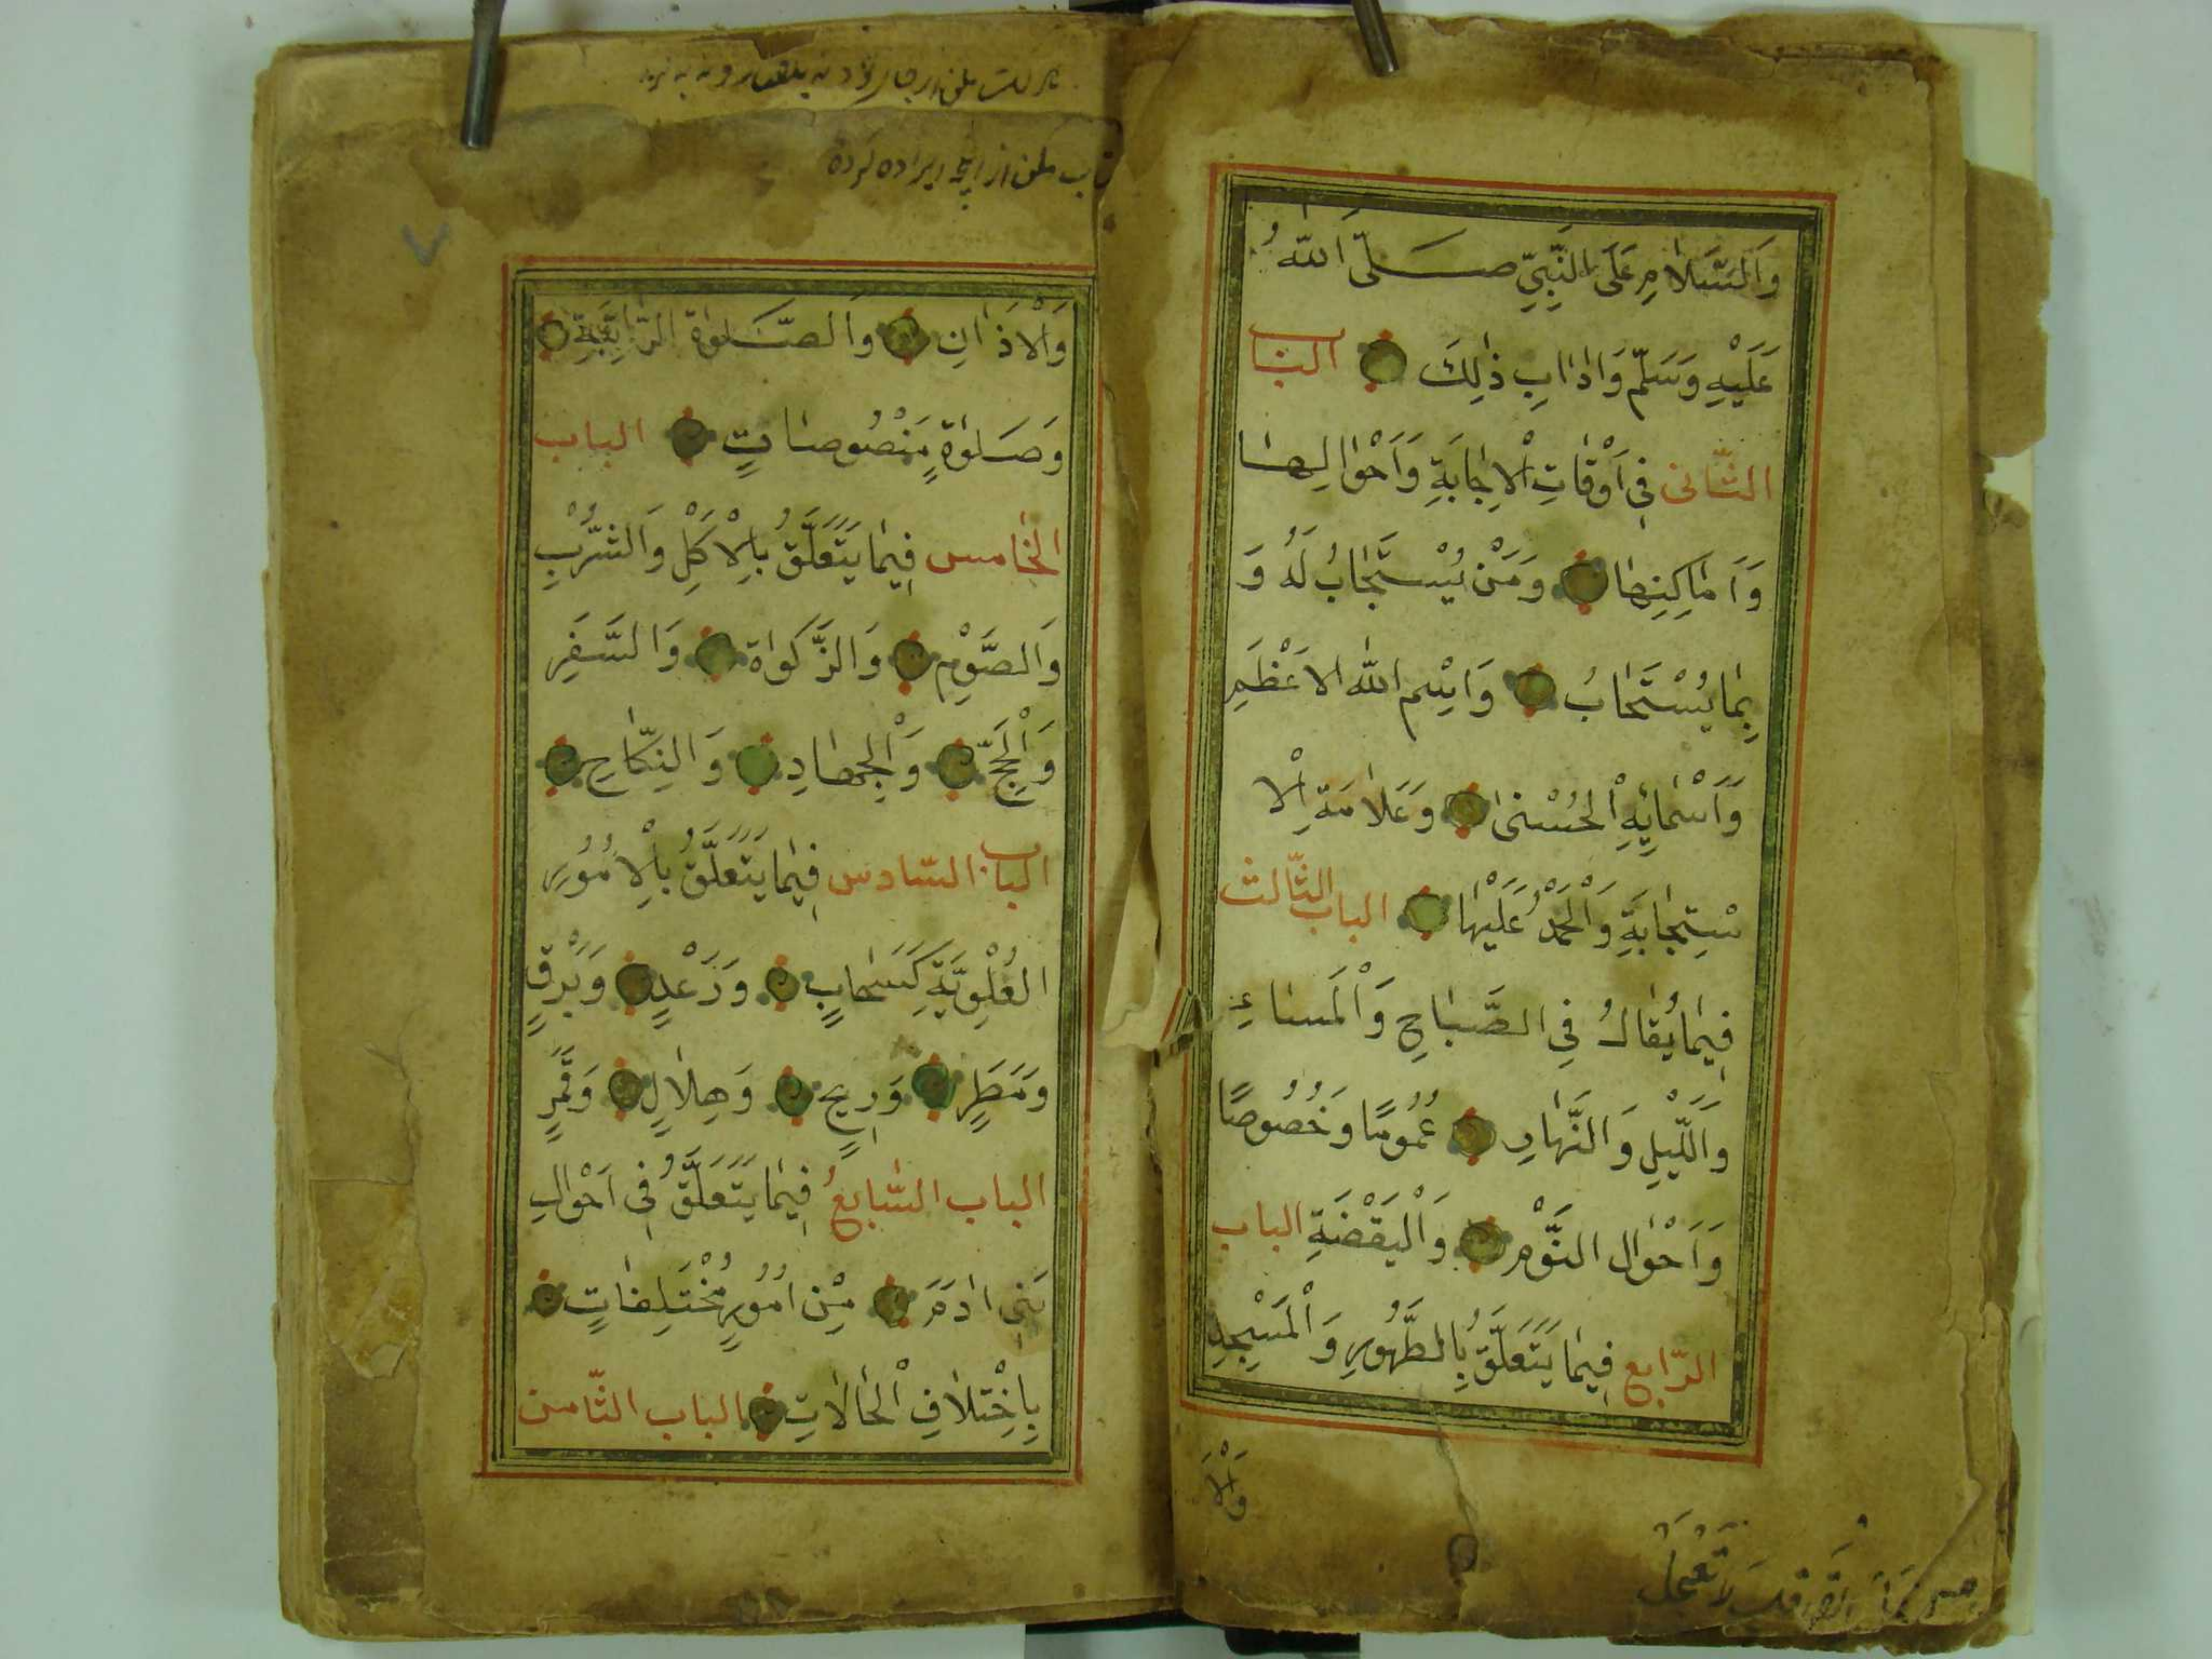 وَالسَّلَامِ عَلَى النَّبِيِّ صَلَّى اللّٰهُ
عَلَيْهِ وَسَلَّمَ وَاٰدَابِ ذٰلِكَ الباب
الثّانى فِى اَوْقَاتِ الْاِجَابَةِ وَاَحْوَالِهَا
وَاَمَاكِنِهَا وَمَنْ يُسْتَجَابُ لَهُ وَ
بِمَا يُسْتَجَابُ وَاسْمِ اللّٰهِ الاَعْظَمِ
وَاَسْمَائِهِ الْحُسْنٰى وَعَلَامَةِ الْا
سْتِجَابَةِ وَالْحَمْدُ عَلَيْهَا الباب الثّالث
فِيمَا يُقَالُ فِى الصَّبَاحِ وَالْمَسَاءِ
وَاللَّيْلِ وَالنَّهَارِ عُمُومًا وَخُصُوصًا
وَاَحْوَالِ النَّوْمِ وَالْيَقْضَةِ الباب
الرّابع فِيمَا يَتَعَلَّقُ بِالطَّهُورِ وَالْمَسْجِدِ
وَالْاَ
وَالْاَذَانِ وَالصَّلٰوةِ الرَّاتِبَةِ
وَصَلٰوةٍ مَنْصُوصَاتٍ الباب
الخامس فِيمَا يَتَعَلَّقُ بِالْاَكْلِ وَالشُّرْبِ
وَالصَّوْمِ وَالزَّكَواةِ وَالسَّفَرِ
وَالْحَجِّ وَالْجِهَادِ وَالنِّكَاحِ
الباب السّادس فِيمَا يَتَعَلَّقُ بِالْاُمُورِ
الْعُلْوِيَّةِ كَسَحَابٍ وَرَعْدٍ وَبَرْقٍ
وَمَطَرٍ وَرِيحٍ وَهِلَالٍ وَقَمَرٍ
الباب السّابعُ فِيمَا يَتَعَلَّقُ فِى اَحْوَالِ
بَنِى اٰدَمَ مِنْ اُمُورٍ مُخْتَلِفَاتٍ
بِاخْتِلَافِ الْحَالَاتِ الباب الثّامن